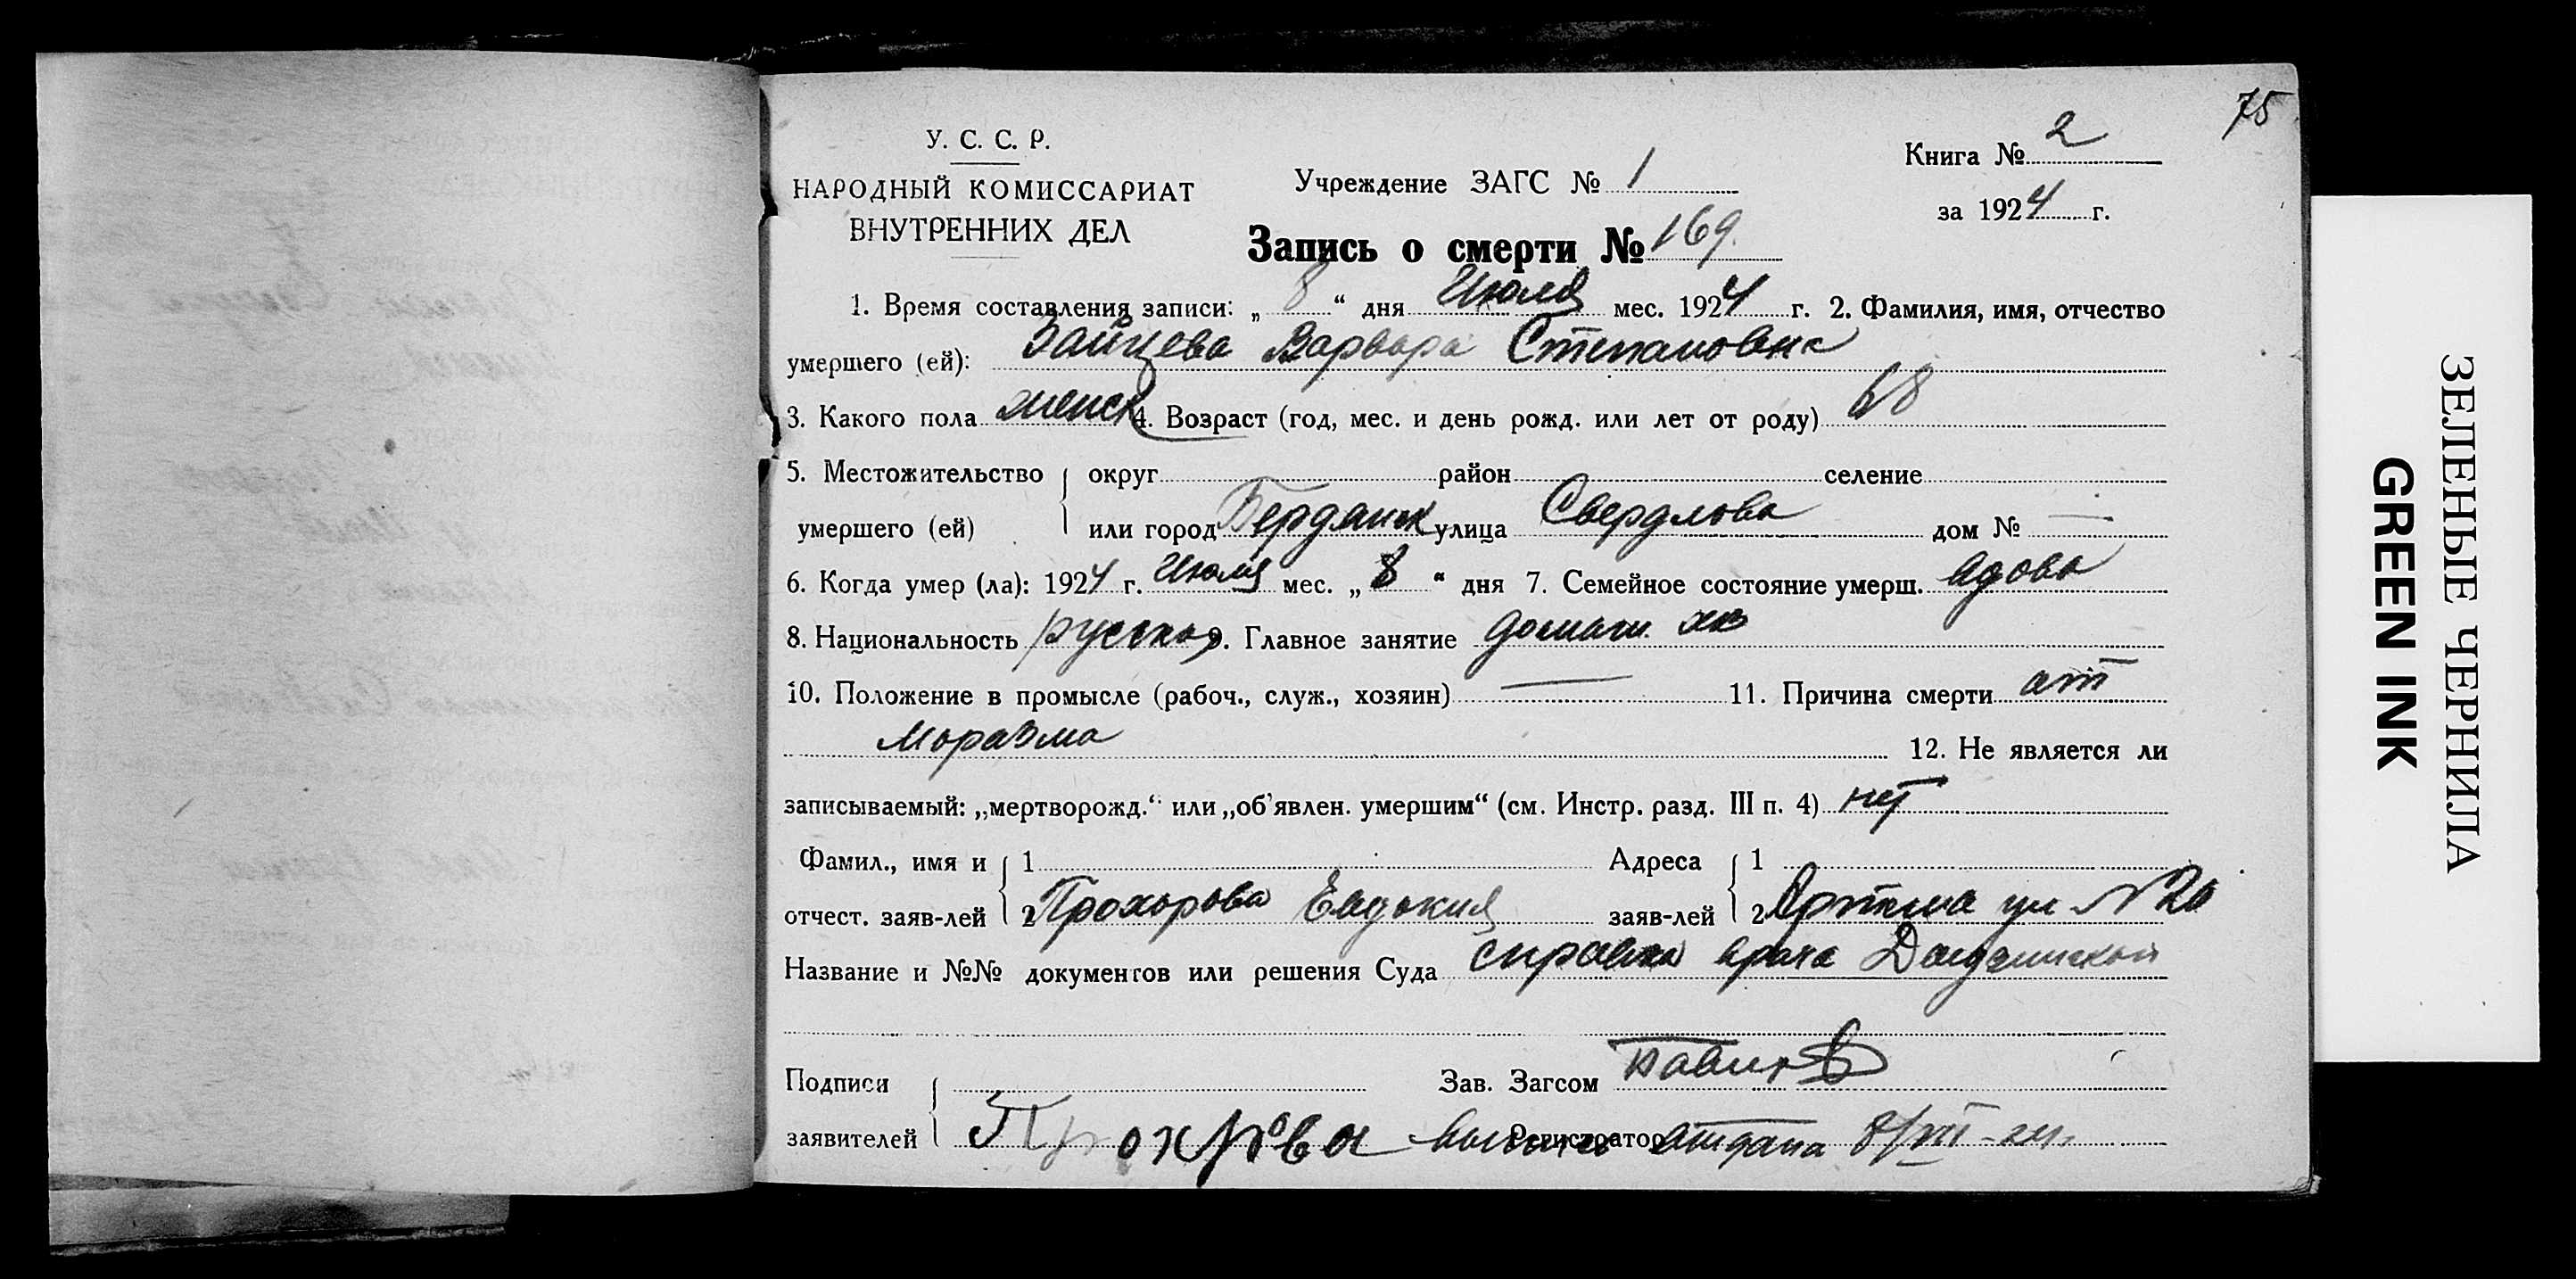 75
У. С. С. Р.
НАРОДНЫЙ КОМИССАРИАТ
ВНУТРЕННИХ ДЕЛ
Учреждение ЗАГС № 1
Книга № 2
за 1924 г.
Запись о смерти № 169.
1. Время составления записи: „ 8 “ дня Июля мес. 1924 г. 2. Фамилия, имя, отчество
умершего (ей): Зайцева Варвара Степановна
3. Какого пола женск 4. Возраст (год, мес. и день рожд. или лет от роду) 68
5. Местожительство округ район селение
умершего (ей) или город Бердянск улица Свердлова дом № —
6. Когда умер (ла): 1924 г. Июля мес. „ 8 “ дня 7. Семейное состояние умерш. вдова
8. Национальность русская 9. Главное занятие домаш. хв
10. Положение в промысле (рабоч., служ., хозяин) — 11. Причина смерти от
Моразма 12. Не является ли
записываемый: „мертворожд.“ или „об’явлен. умершим“ (см. Инстр. разд. III п. 4) нет
Фамил., имя и 1 Адреса 1
отчест. заяв-лей 2 Прохорова Евдокия заяв-лей 2 Артема ул N 20
Название и №№ документов или решения Суда справка врача
Подписи Зав. Загсом
заявителей Прохрова Регистратор отдана 8/VII-24.
ЗЕЛЕНЫЕ ЧЕРНИЛА
GREEN INK